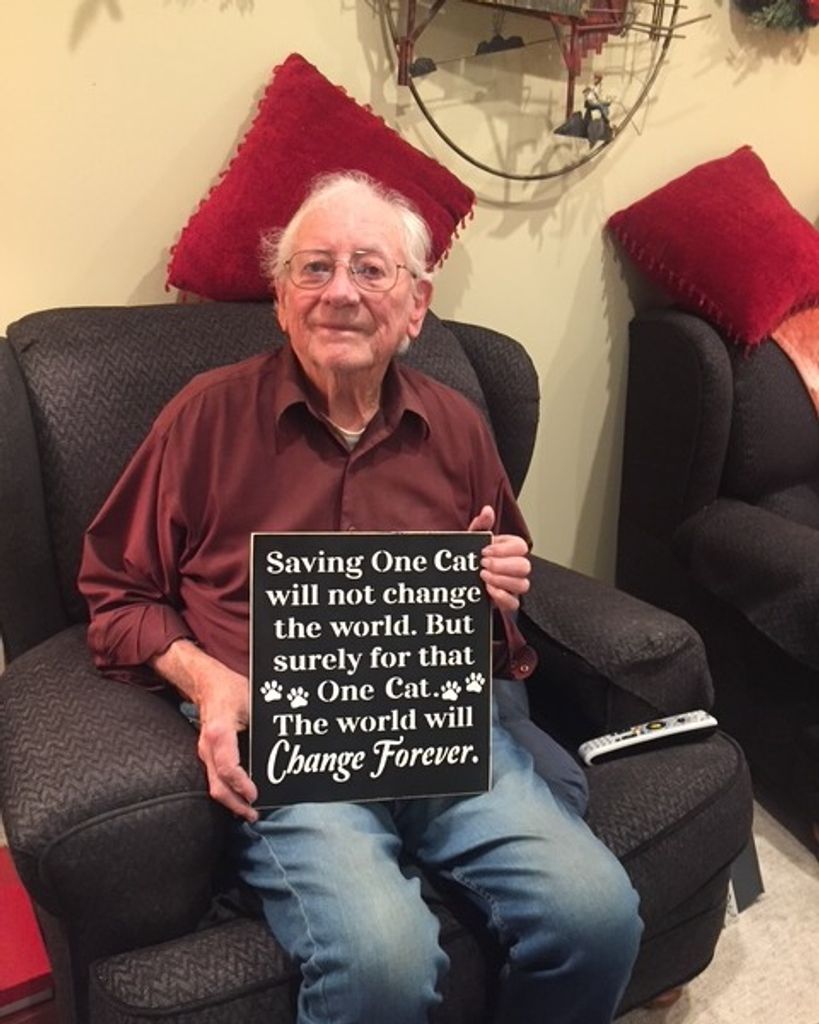 Saving One Cat
will not change
the world. But
surely for that
One Cat.
The world will
Change Forever.